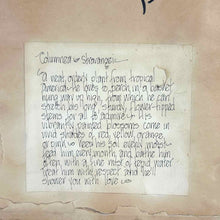 Columnea ~ Stavanger
a neat, orderly plant from tropical
america~he loves to perch in a basket
hung way up high, from which he can
stretch his long, sturdy, flower-tipped
stems for all to admire. His
vibrantly painted blossoms come in
vivid shades of red, yellow, orange,
or pink ~ keep his soil evenly moist
feed him every month and bathe him
often with a fine mist of tepid water
treat him with respect and he'll
shower you with love